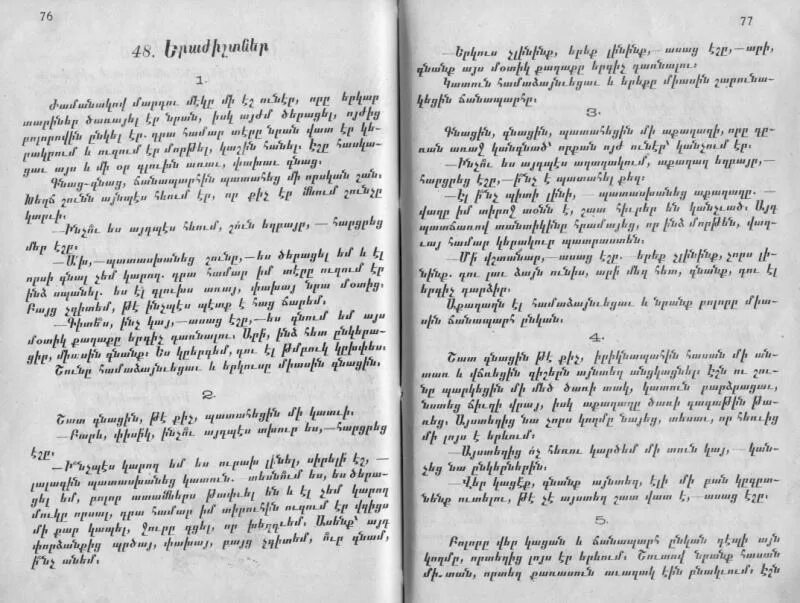 76
48. Երաժիշտներ
1.
Ժամանակով մարդու մէկը մի էշ ունէր, որը երկար
տարիներ ծառայել էր նրան, իսկ այժմ ծերացել, ոյժից
բոլորովին ընկել էր. դրա համար տէրը նրան վատ էր կե-
րակրում և ուզում էր մորթել, կաշին հանել։ Էշը հասկա-
ցաւ այս և մի օր գլուխն առաւ, փախաւ գնաց.
Գնաց-գնաց, ճանապարհին պատահեց մի որսկան շան.
Խեղճ շունն այնպէս հևում էր, որ քիչ էր մնում շունչը
կտրուի.
—Ինչո՞ւ ես այդպէս հևում, շո՛ւն եղբայր, — հարցրեց
մեր էշը.
—Ա՛խ,—պատասխանեց շունը,—ես ծերացել եմ և էլ
որսի գնալ չեմ կարող. դրա համար իմ տէրը ուզում էր
ինձ սպանել. ես էլ գլուխս առայ, փախայ նրա մօտից.
Բայց չգիտեմ, թէ ինչպէս պէտք է հաց ճարեմ.
—Գիտե՞ս, ինչ կայ,—ասաց էշը,—ես գնում եմ այս
մօտիկ քաղաքը երգիչ դառնալու. Արի, ինձ հետ ընկերա-
ցիր, միասին գնանք. Ես կ՚երգեմ, դու էլ թմբուկ կըխփես.
Շունը համաձայնւեցաւ և երկուսը միասին գնացին.
2.
Շատ գնացին, թէ քիչ, պատահեցին մի կատւի.
—Բարև, փիսիկ, ինչո՞ւ այդպէս տխուր ես,—հարցրեց
էշը.
—Ի՞նչպէս կարող եմ ես ուրախ լինել, սիրելի՛ էշ, —
լալագին պատասխանեց կատուն.— տեսնո՞ւմ ես, ես ծերա-
ցել եմ, բոլոր ատամներս թափւել են և էլ չեմ կարող
մուկը որսալ, դրա համար իմ տիրուհին ուզում էր վզիցս
մի քար կապել, ջուրը գցել, որ խեղդւեմ. Ասենք՝ այդ
փորձանքից պրծայ, փախայ, բայց չգիտեմ, ո՞ւր գնամ,
ի՞նչ անեմ.
77
—Երկուս չլինինք, երեք լինինք,—ասաց էշը,—արի,
գնանք այս մօտիկ քաղաքը երգիչ դառնալու։
Կատուն համաձայնւեցաւ և երեքը միասին շարունա-
կեցին ճանապարհը.
3.
Գնացին, գնացին, պատահեցին մի աքաղաղի, որը դը-
ռան առաջ կանգնած՝ որքան ոյժ ունէր՝ կանչում էր.
—Ինչո՞ւ ես այդպէս աղաղակում, աքաղաղ եղբայր,—
հարցրեց էշը,—ի՞նչ է պատահել քեզ։
—Էլ ի՞նչ պիտի լինի, — պատասխանեց աքաղաղը. —
վաղը իմ տիրոջ տօնն է, շատ հիւրեր են կանչւած. Այդ
պատճառով տանտիկինը հրամայեց, որ ինձ մորթեն, վաղ-
ւայ համար կերակուր պատրաստեն.
—Մի վշտանար,—ասաց էշը.—երեք չլինինք, չորս լի-
նինք. դու լաւ ձայն ունիս, արի մեզ հետ, գնանք, դու էլ
երգիչ դարձիր.
Աքաղաղն էլ համաձայնւեցաւ և նրանք բոլորը միա-
սին ճանապարհ ընկան.
4.
Շատ գնացին թէ քիչ, իրիկնապահին հասան մի ան-
տառ և վճռեցին գիշերն այնտեղ անցկացնել։ Էշն ու շու-
նը պարկեցին մի մեծ ծառի տակ, կատուն բարձրացաւ,
նստեց ճիւղի վրայ, իսկ աքաղաղը ծառի գագաթին թա-
ռեց. Այստեղից նա չորս կողմը նայեց, տեսաւ, որ հեռւից
մի լոյս է երևում.
—Այստեղից ոչ հեռու կարծեմ մի տուն կայ,— կան-
չեց նա ընկերներին.
—Վեր կացէք, գնանք այնտեղ, էլի մի բան կըգտ-
նենք ուտելու, թէ չէ այստեղ շատ վատ է,—ասաց էշը.
5.
Բոլորը վեր կացան և ճանապարհ ընկան դէպի այն
կողմը, որտեղից լոյս էր երևում. Շուտով նրանք հասան
մի տան, որտեղ քառասուն աւազակ էին բնակւում. Էշն